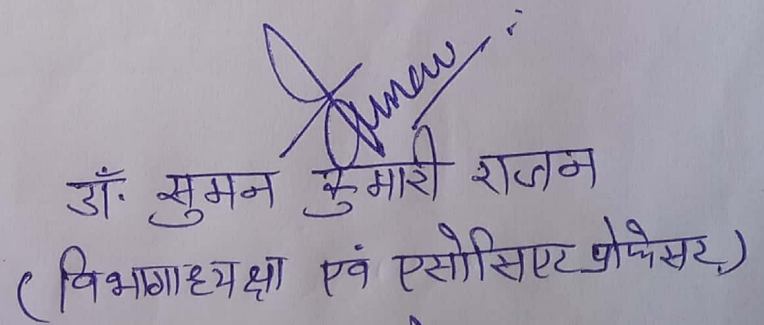 डॉ. सुमन कुमारी राजन
(विभागाध्यक्षा एवं एसोसिएट प्रोफेसर)